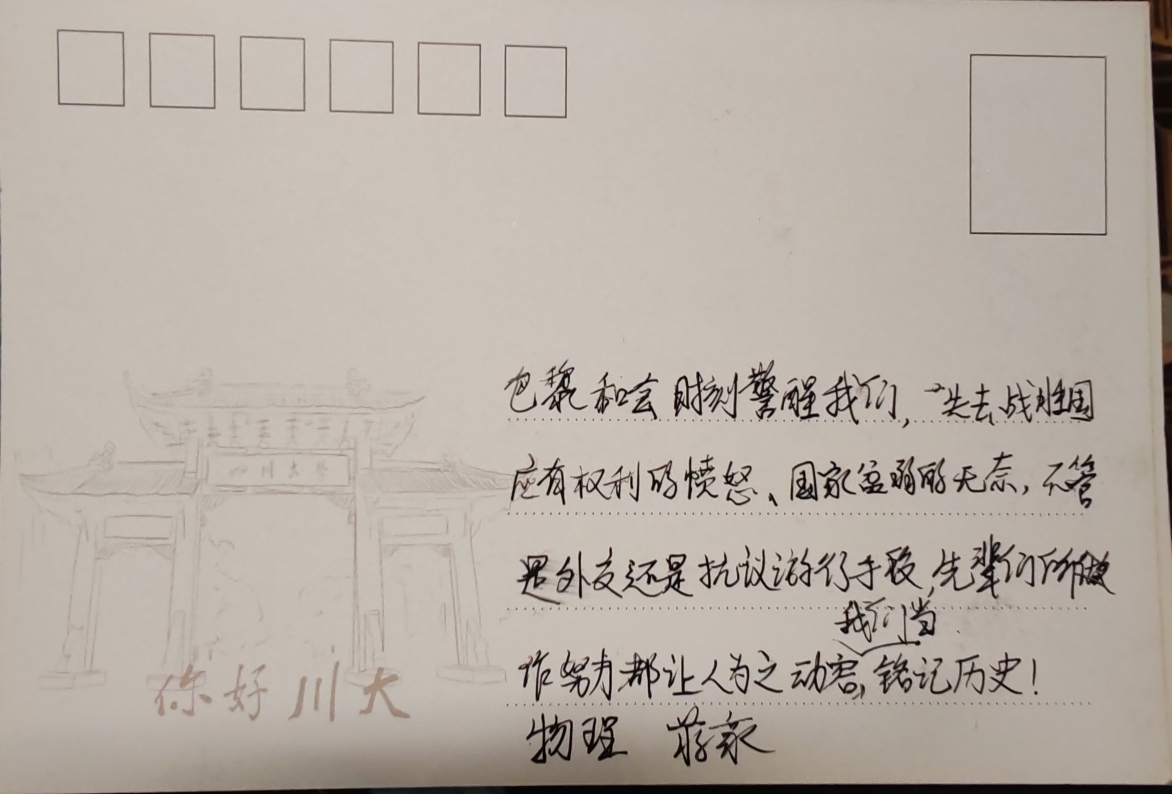 巴黎和会时刻警醒我们,失去战胜国
应有权利的愤怒、国家贫弱的无奈,不管
是外交还是抗议游行手段,先辈们所做
我们当
作努力都让人为之动容,铭记历史!
物理 蒋
四川大学
你好川大